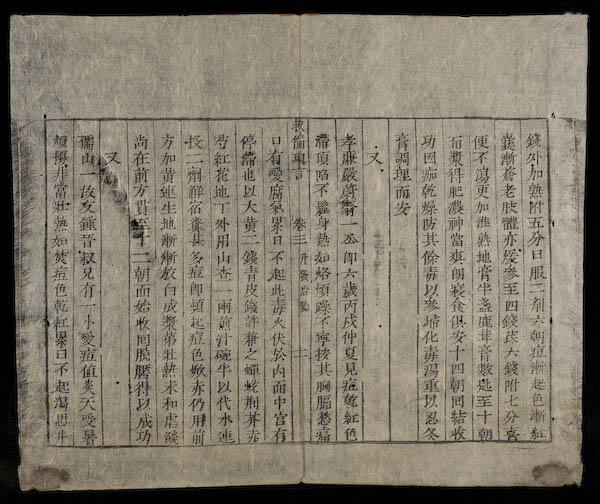 錢外加熟附五分日服二劑六朝痘漸起色漸紅
囊漸蒼老肢體亦緩參至四錢芪六錢附七分喜
便不瀉更加進熟地膏半盞鹿茸膏數匙至十朝
而漿得肥濃神當爽朗寢食俱安十四朝回結收
功因痂乾燥防其餘毒以參歸化毒湯重以忍冬
膏調理而安
又
孝廉嚴蔚翁一公郎六歲丙戌仲夏見痘乾紅色
滯頂陷不鬆身熱如烙煩躁不寧按其胸膈愁痛
口有愛腐氣累日不起此毒火伏於內而中宮有
停滯也以大黃二錢青皮錢許兼之蟬蛻荊芥赤
芍紅花地丁外用山查一兩煎汁碗半以代水連
投二劑解宿糞甚多痘即頓起痘色歛赤仍用前
方加黃連生地漸漸放白成漿第壯熱未和虐燄
尚在前方貫至十二朝而始收回脫靨得以成功
又
孺山一故友鍾晉叔兄有一小愛痘值炎天受暑
煩擾非常壯熱如焚痘色乾紅累日不起渴思井
救偏瑣言
卷三
二